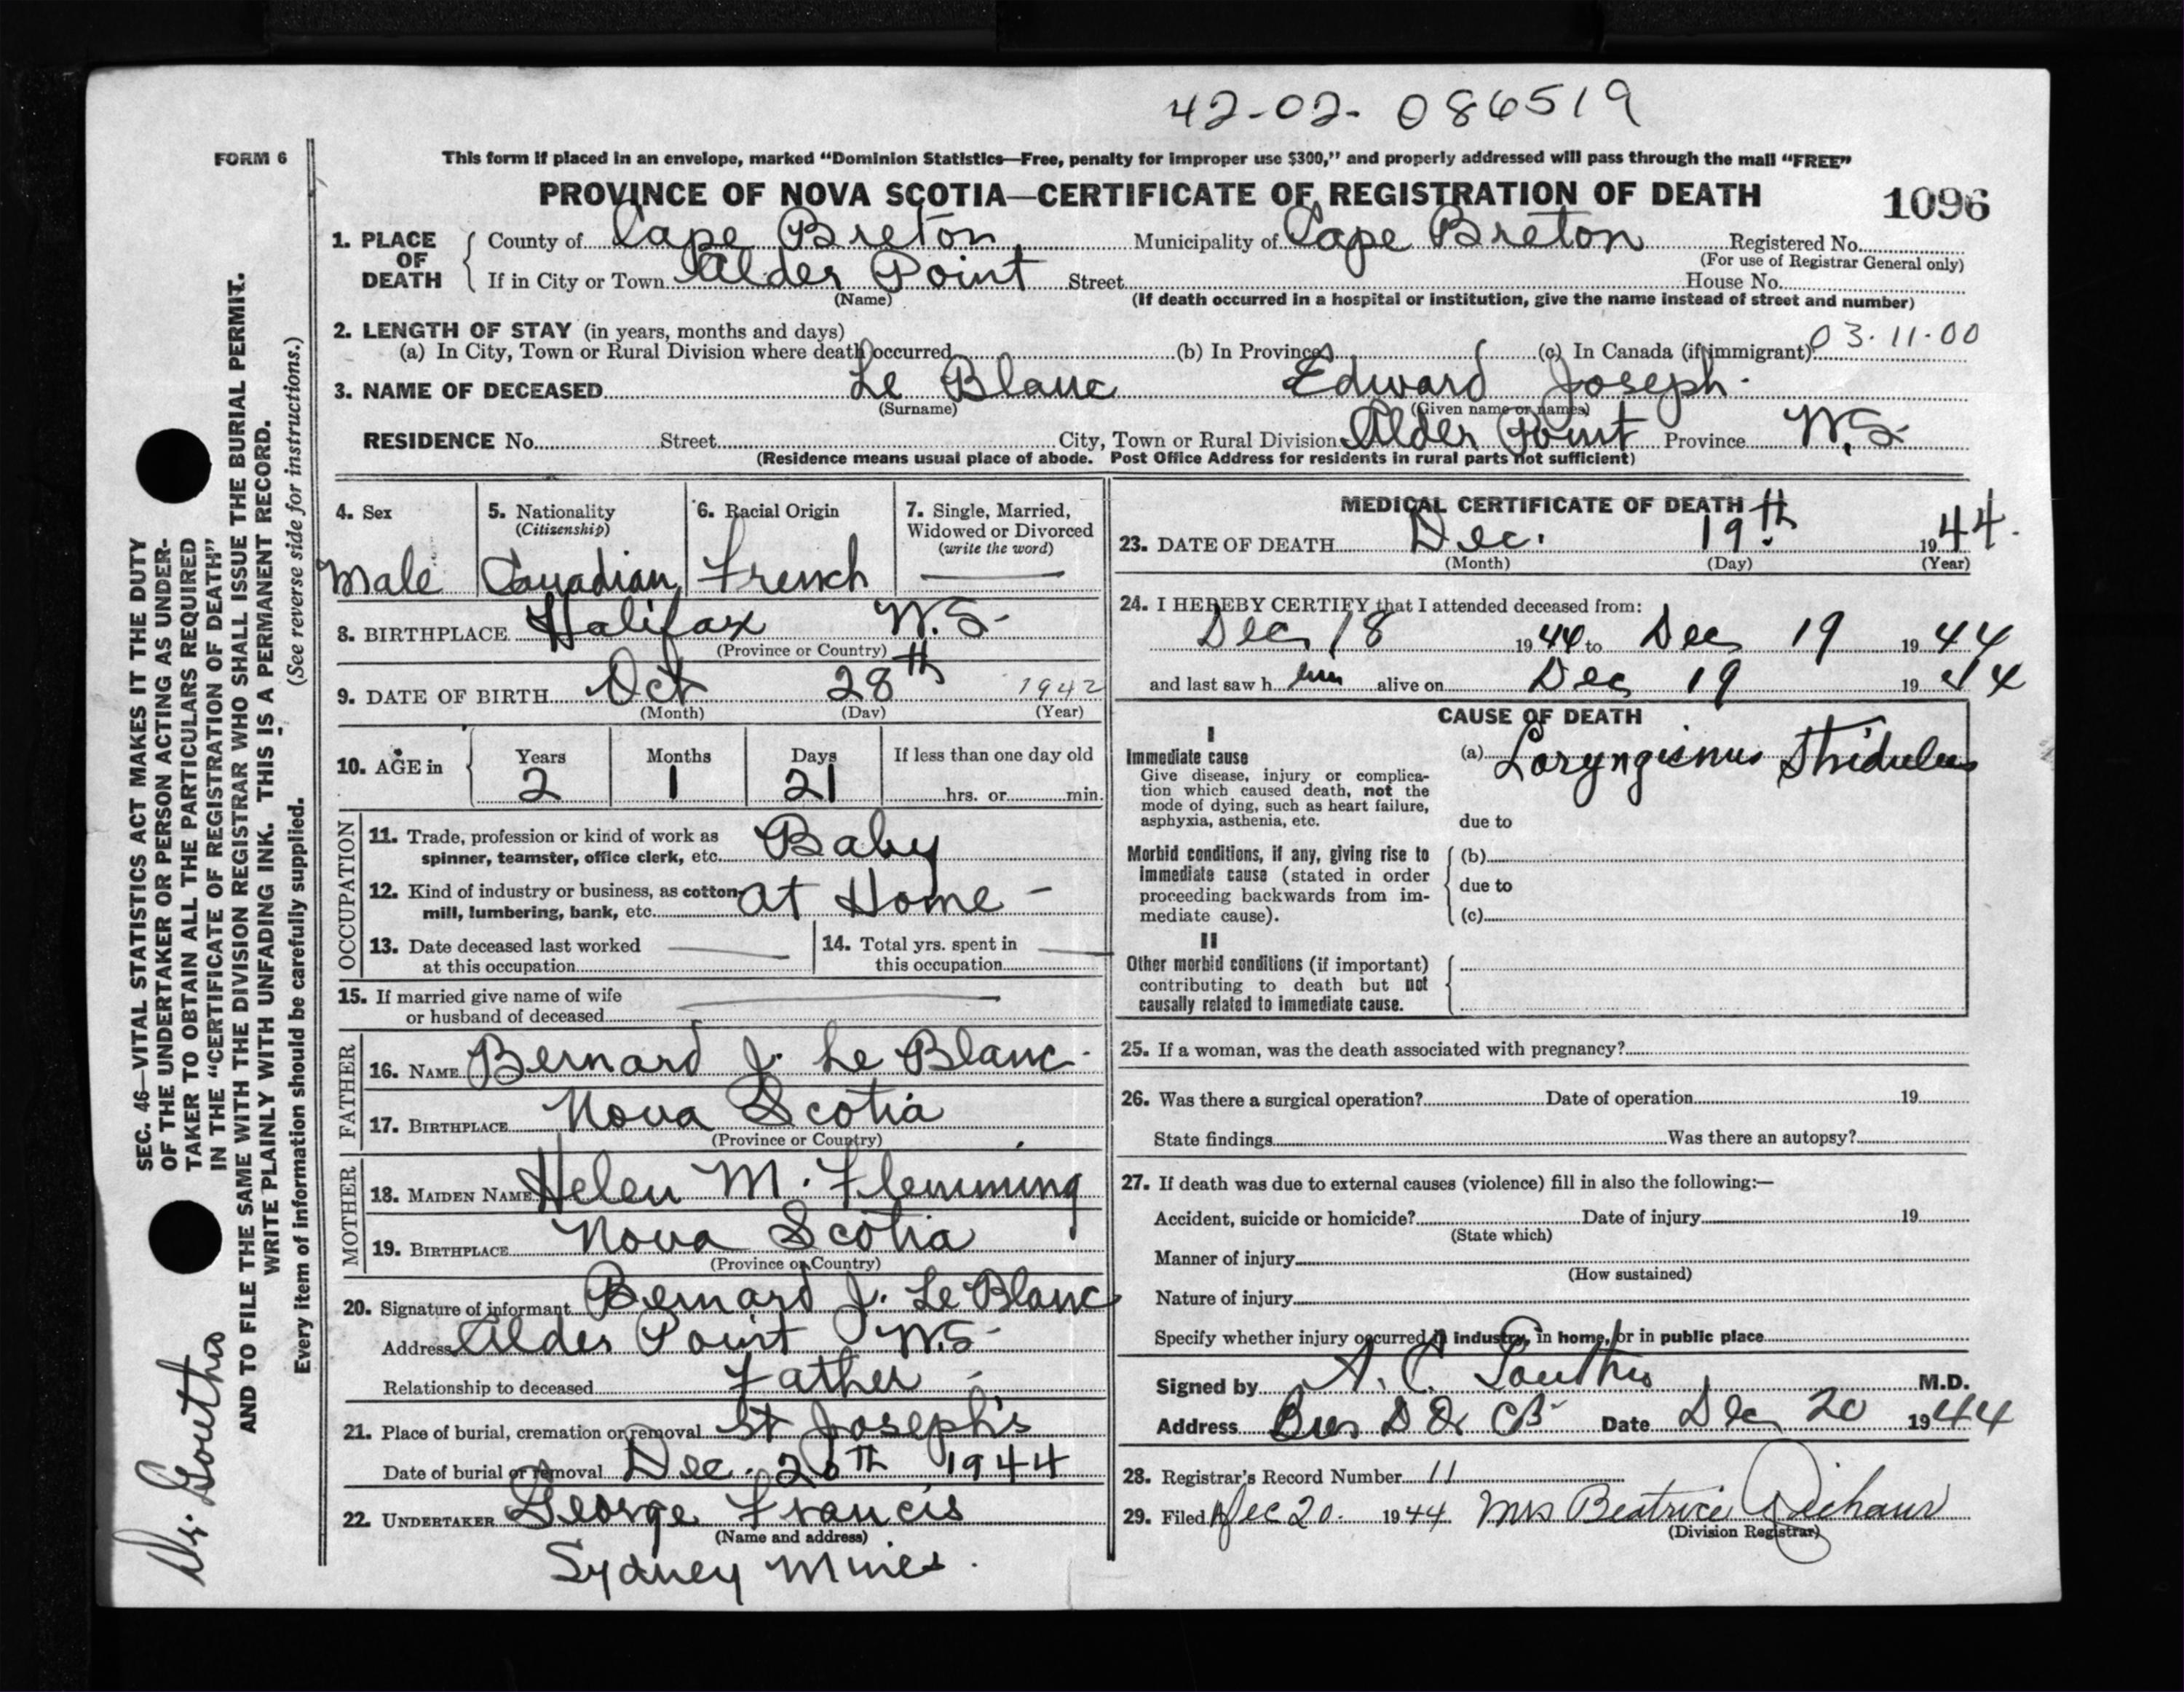 42-02- 086519
FORM 6
This form if placed in an envelope, marked "Dominion Statistics—Free, penalty for improper use $300," and properly addressed will pass through the mail "FREE"
PROVINCE OF NOVA SCOTIA—CERTIFICATE OF REGISTRATION OF DEATH
1096
1. PLACE OF DEATH County of Cape Breton Municipality of Cape Breton Registered No.
(For use of Registrar General only)
If in City or Town Alder Point Street House No.
(Name) (If death occurred in a hospital or institution, give the name instead of street and number)
2. LENGTH OF STAY (in years, months and days)
(a) In City, Town or Rural Division where death occurred (b) In Province (c) In Canada (if immigrant) 03.11.00
3. NAME OF DECEASED Le Blanc Edward Joseph.
(Surname) (Given name or names)
RESIDENCE No. Street City, Town or Rural Division Alder Point Province N.S.
(Residence means usual place of abode. Post Office Address for residents in rural parts not sufficient)
4. Sex
Male
5. Nationality
(Citizenship)
Canadian
6. Racial Origin
French
7. Single, Married,
Widowed or Divorced
(write the word)
8. BIRTHPLACE Halifax N.S.
(Province or Country)
9. DATE OF BIRTH Oct 28th 1942
(Month) (Day) (Year)
10. AGE in Years Months Days If less than one day old
2 1 21 hrs. or min.
OCCUPATION
11. Trade, profession or kind of work as
spinner, teamster, office clerk, etc. Baby
12. Kind of industry or business, as cotton-
mill, lumbering, bank, etc. at Home -
13. Date deceased last worked
at this occupation
14. Total yrs. spent in
this occupation
15. If married give name of wife
or husband of deceased
FATHER
16. NAME Bernard J. Le Blanc.
17. BIRTHPLACE Nova Scotia
(Province or Country)
MOTHER
18. MAIDEN NAME Helen M. Flemming
19. BIRTHPLACE Nova Scotia
(Province or Country)
20. Signature of informant Bernard J. Le Blanc
Address Alder Point N.S.
Relationship to deceased Father
21. Place of burial, cremation or removal St Joseph's
Date of burial or removal Dec. 20TH 1944
22. UNDERTAKER George Francis
(Name and address)
Sydney Mines.
MEDICAL CERTIFICATE OF DEATH
23. DATE OF DEATH Dec. 19th 1944.
(Month) (Day) (Year)
24. I HEREBY CERTIFY that I attended deceased from:
Dec 18 1944 to Dec 19 1944
and last saw h im alive on Dec 19 1944
CAUSE OF DEATH
I
Immediate cause
Give disease, injury or complica-
tion which caused death, not the
mode of dying, such as heart failure,
asphyxia, asthenia, etc.
(a) Laryngismus Stridulus
due to
Morbid conditions, if any, giving rise to
immediate cause (stated in order
proceeding backwards from im-
mediate cause).
(b)
due to
(c)
II
Other morbid conditions (if important)
contributing to death but not
causally related to immediate cause.
25. If a woman, was the death associated with pregnancy?
26. Was there a surgical operation? Date of operation 19
State findings Was there an autopsy?
27. If death was due to external causes (violence) fill in also the following:—
Accident, suicide or homicide? Date of injury 19
(State which)
Manner of injury
(How sustained)
Nature of injury
Specify whether injury occurred in industry, in home, or in public place
Signed by A. C. M.D.
Address Date Dec 20 1944
28. Registrar's Record Number 11
29. Filed Dec 20. 1944 Mrs Beatrice
(Division Registrar)
SEC. 46—VITAL STATISTICS ACT MAKES IT THE DUTY
OF THE UNDERTAKER OR PERSON ACTING AS UNDER-
TAKER TO OBTAIN ALL THE PARTICULARS REQUIRED
IN THE "CERTIFICATE OF REGISTRATION OF DEATH"
AND TO FILE THE SAME WITH THE DIVISION REGISTRAR WHO SHALL ISSUE THE BURIAL PERMIT.
WRITE PLAINLY WITH UNFADING INK. THIS IS A PERMANENT RECORD.
Every item of information should be carefully supplied. (See reverse side for instructions.)
Dr.